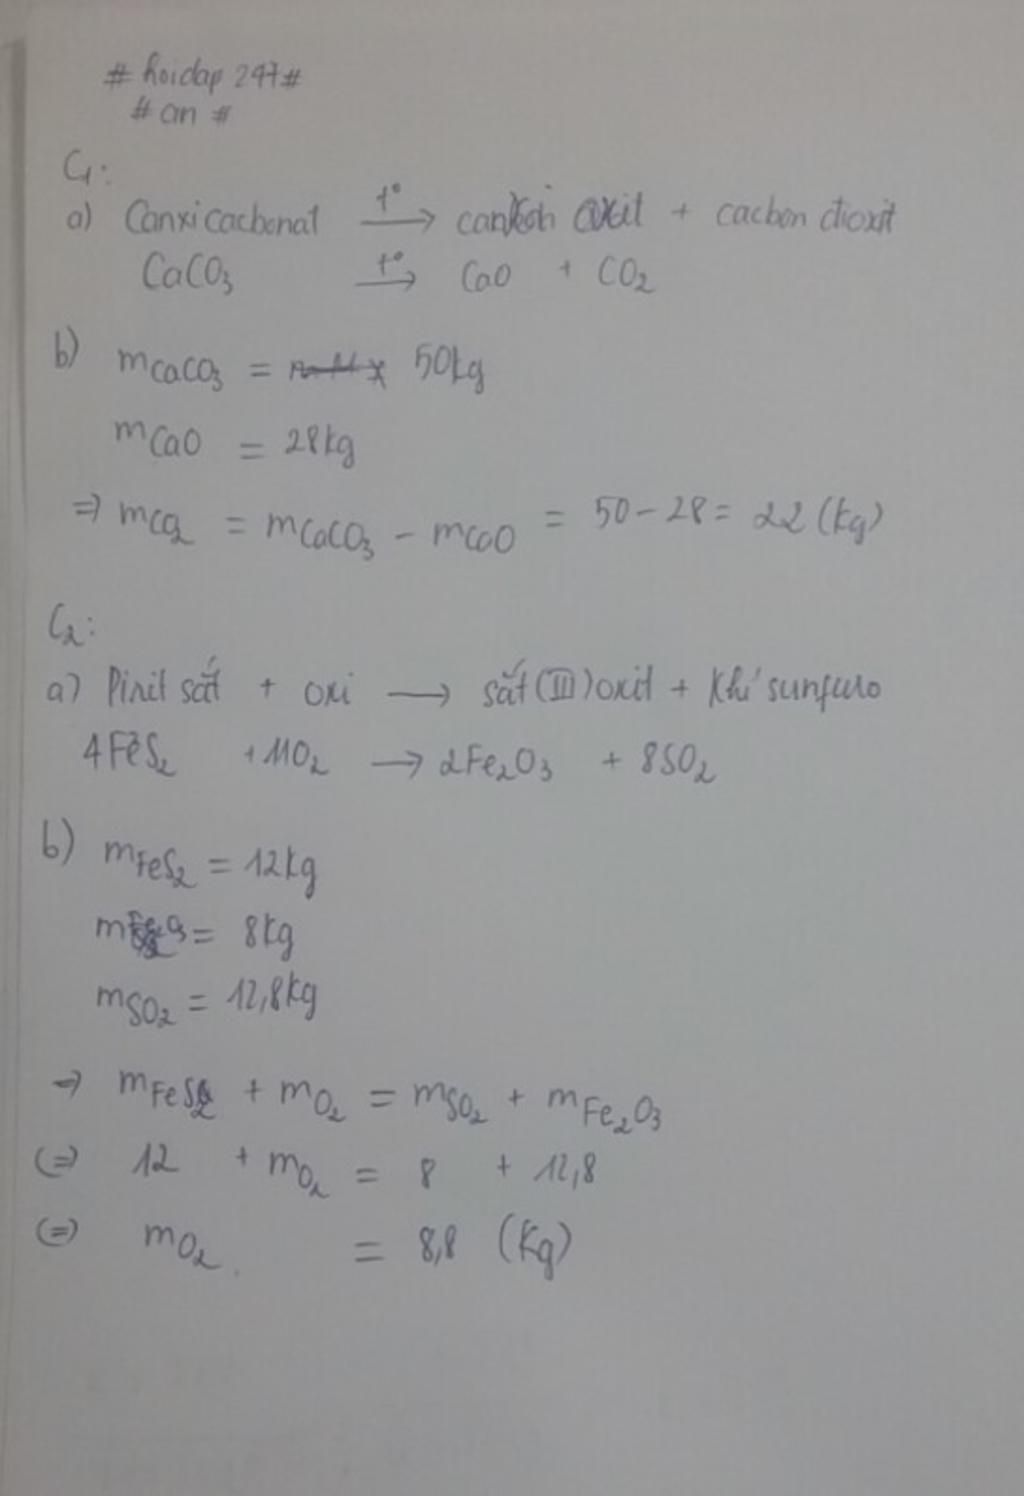 # hoidap 247#
# an #
C1:
a) Canxi cacbonat t° → canxi oxit + cacbon đioxit
CaCO3 t° → CaO + CO2
b) mCaCO3 = 50kg
mCaO = 28kg
=> mCO2 = mCaCO3 - mCaO = 50-28 = 22 (kg)
C2:
a) Pirit sắt + oxi → sắt (III) oxit + Khí sunfuro
4FeS2 + 11O2 → 2Fe2O3 + 8SO2
b) mFeS2 = 12kg
mFe2O3 = 8kg
mSO2 = 12,8kg
=> mFeS2 + mO2 = mSO2 + mFe2O3
(=) 12 + mO2 = 8 + 12,8
(=) mO2 = 8,8 (Kg)